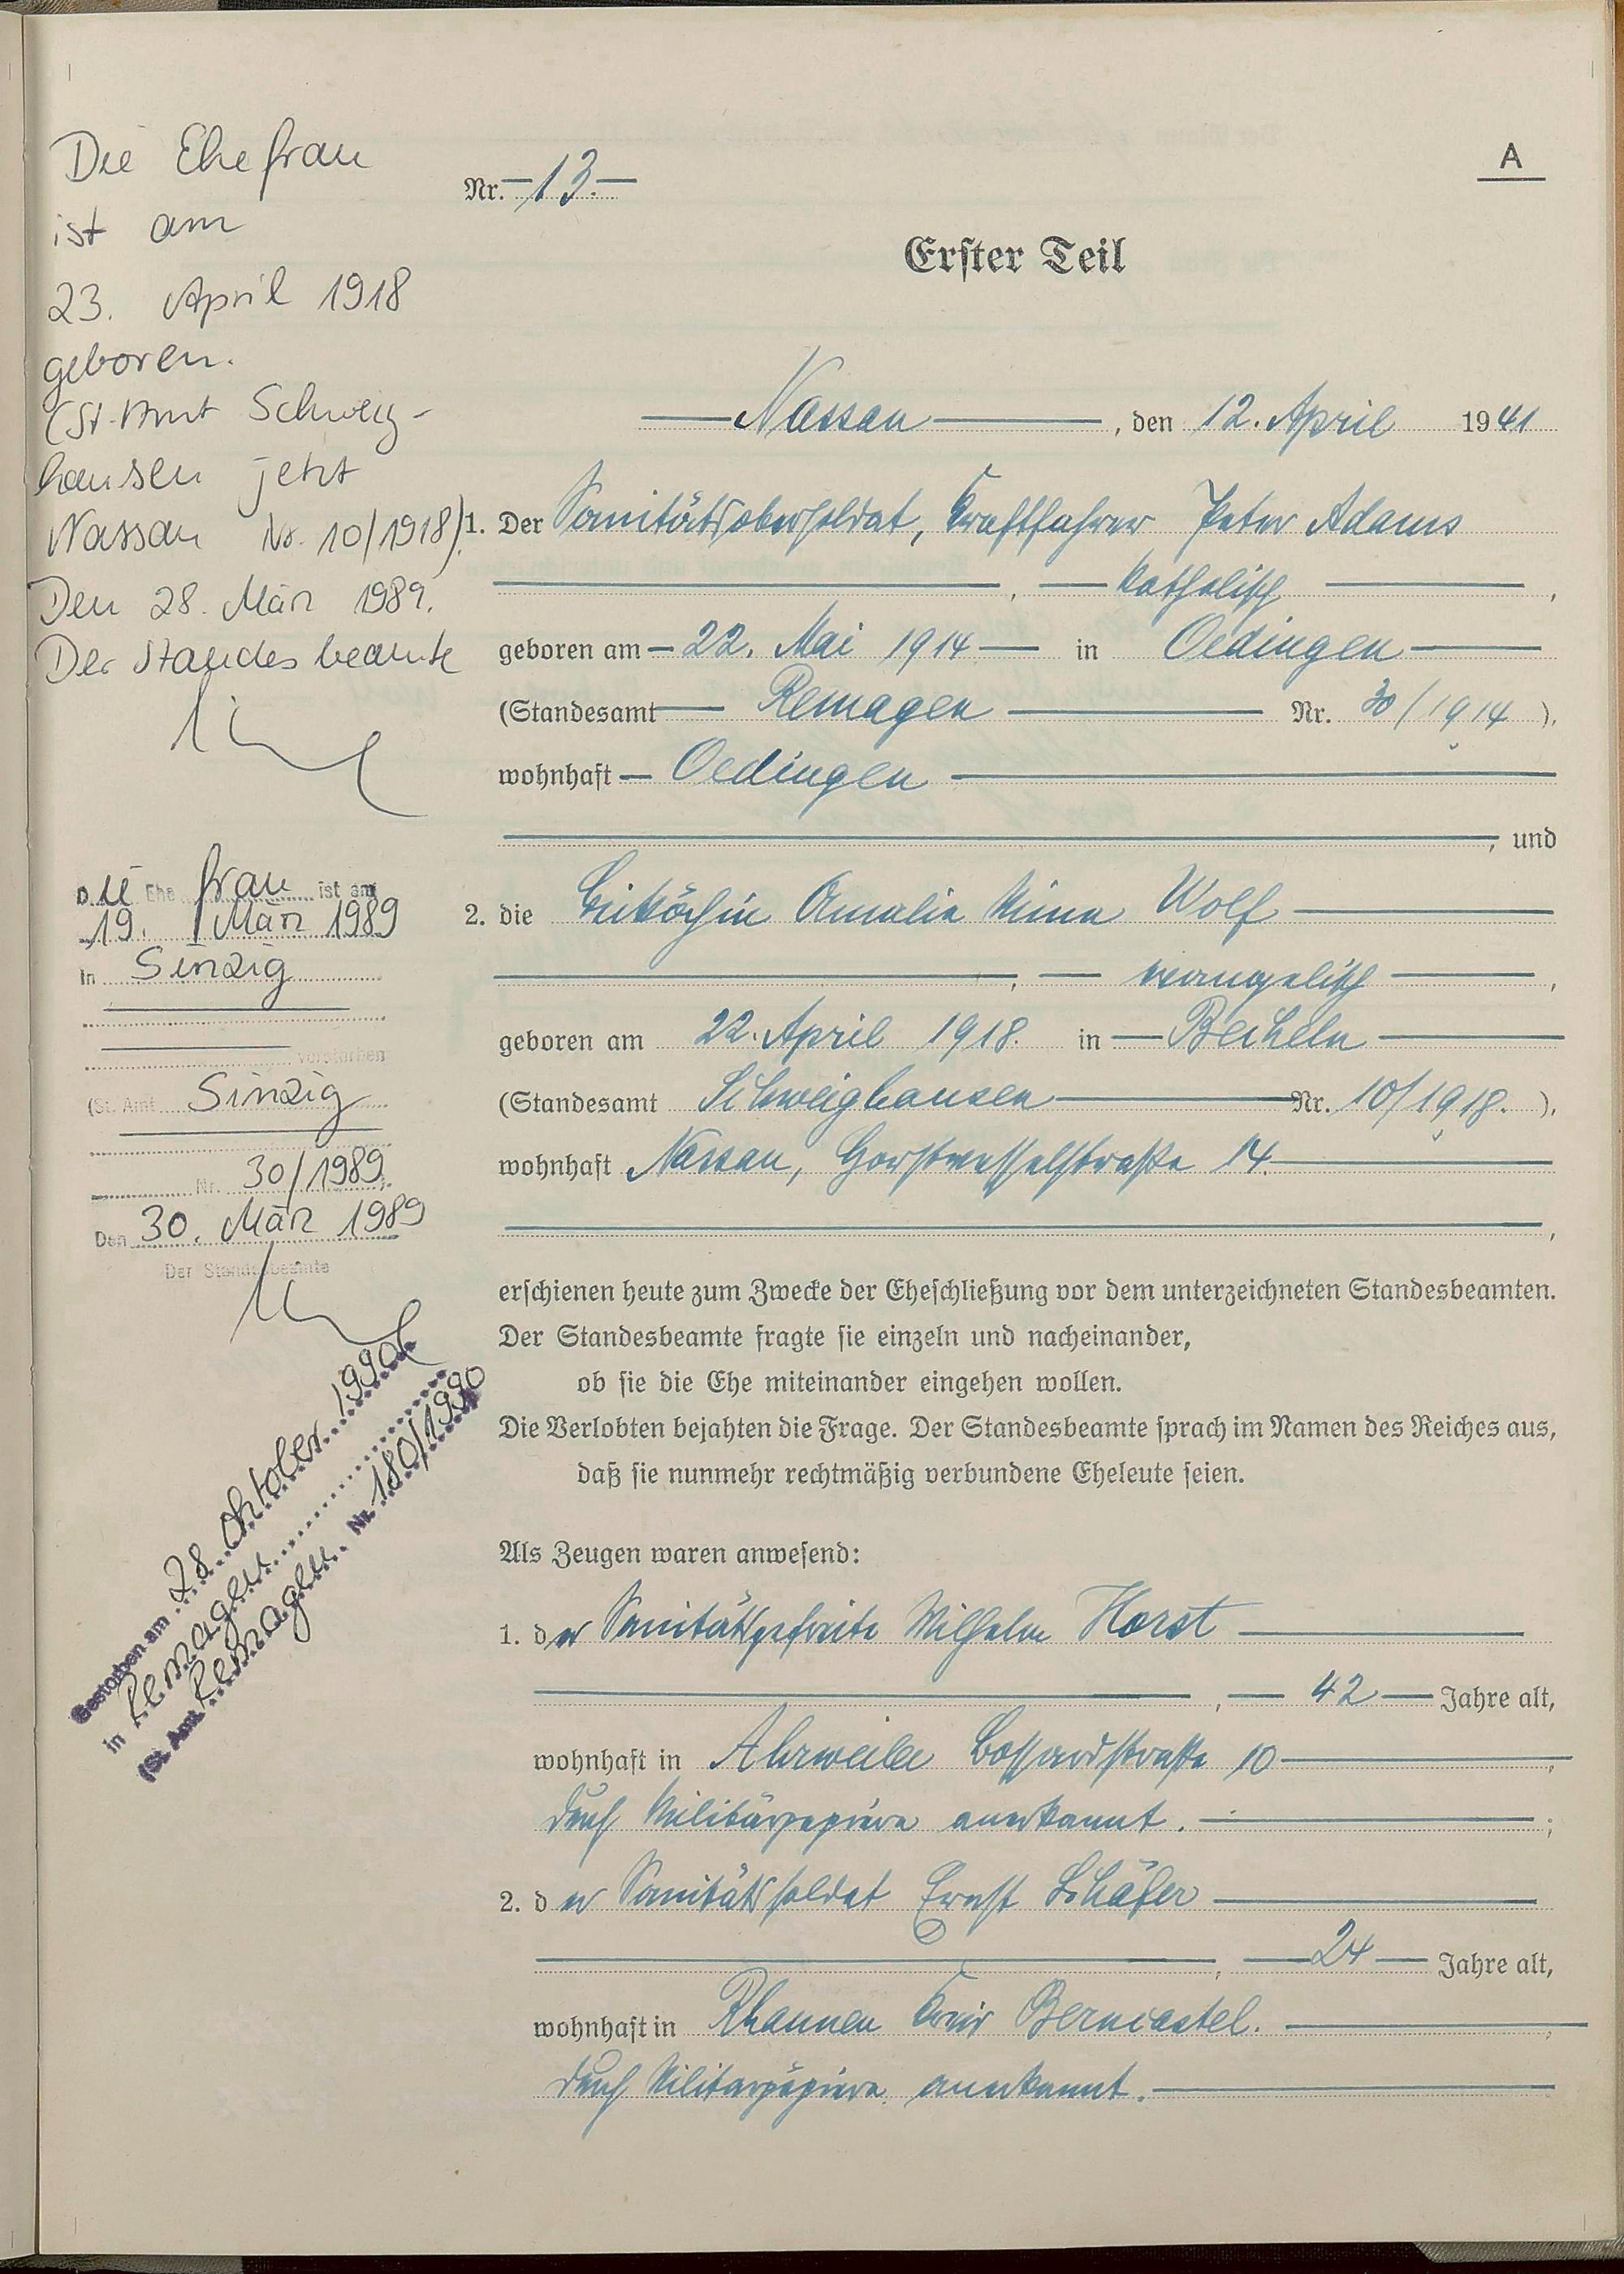 Die Ehefrau
ist am
23. April 1918
geboren.
(St.-Amt Schweig-
hausen jetzt
Nassau Nr. 10/1918).
Den 28. März 1989.
Der Standesbeamte
Die Ehefrau ist am
19. März 1989
in Sinzig
verstorben
(St. Amt Sinzig
Nr. 30/1989).
Den 30. März 1989
Der Standesbeamte
Gestorben am 28. Oktober 1990
in Remagen
(St. Amt Remagen Nr. 180/1990
A
Nr. 13.
Erster Teil
Nassau, den 12. April 1941
1. Der Sanitätsobersoldat, Kraftfahrer Peter Adams
, katholisch,
geboren am 22. Mai 1914 in Oedingen
(Standesamt Remagen Nr. 30/1914),
wohnhaft Oedingen
, und
2. die Beiköchin Amalie Mina Wolf
, evangelisch,
geboren am 22. April 1918. in Becheln
(Standesamt Schweighausen Nr. 10/1918.),
wohnhaft Nassau, Horstwesselstraße 14.
,
erschienen heute zum Zwecke der Eheschließung vor dem unterzeichneten Standesbeamten.
Der Standesbeamte fragte sie einzeln und nacheinander,
ob sie die Ehe miteinander eingehen wollen.
Die Verlobten bejahten die Frage. Der Standesbeamte sprach im Namen des Reiches aus,
daß sie nunmehr rechtmäßig verbundene Eheleute seien.
Als Zeugen waren anwesend:
1. der Sanitätsgefreite Wilhelm Horst
, 42 Jahre alt,
wohnhaft in Ahrweiler Bossardstraße 10,
durch Militärpapiere anerkannt.;
2. der Sanitätssoldat Ernst Schäfer
, 24 Jahre alt,
wohnhaft in Rhaunen Kreis Berncastel.,
durch Militärpapiere anerkannt.